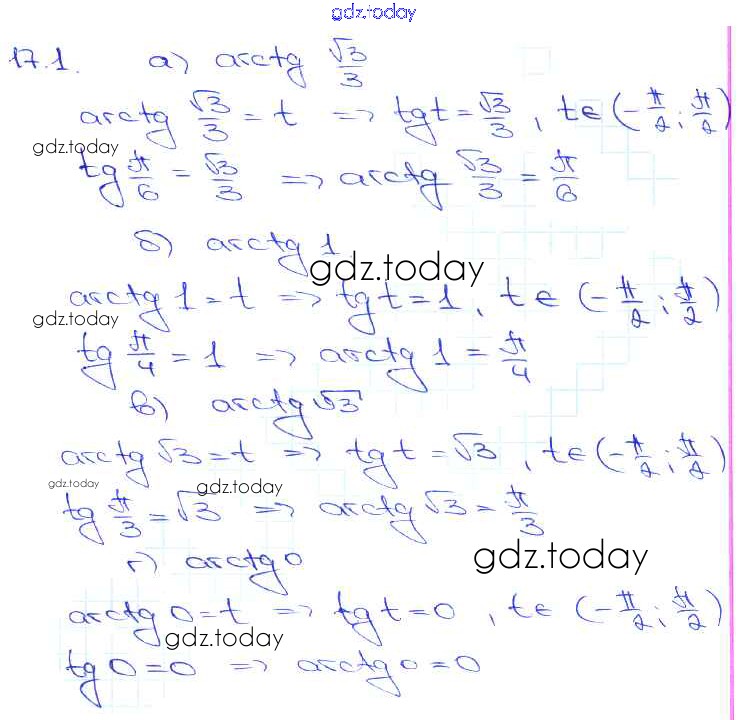 gdz.today
17.1. а) arctg √3/3
arctg √3/3 = t => tg t = √3/3, t∈(-π/2; π/2)
gdz.today
tg π/6 = √3/3 => arctg √3/3 = π/6
б) arctg 1
gdz.today
arctg 1 = t => tg t = 1, t∈(-π/2; π/2)
gdz.today
tg π/4 = 1 => arctg 1 = π/4
в) arctg √3
arctg √3 = t => tg t = √3, t∈(-π/2; π/2)
gdz.today gdz.today
tg π/3 = √3 => arctg √3 = π/3
г) arctg 0
gdz.today
arctg 0 = t => tg t = 0, t∈(-π/2; π/2)
gdz.today
tg 0 = 0 => arctg 0 = 0